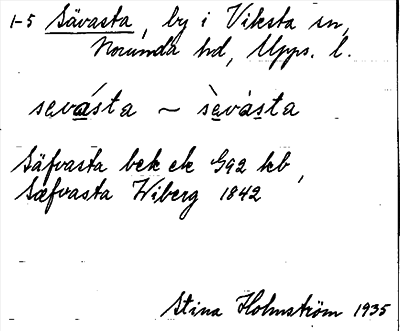 1-5 Sävasta, by i Viksta sn,
Norunda hd, Upps. l.
sævásta ~ sævàsta
Säfvasta bek ek G92 kb,
Sæfvasta Wiberg 1842
Stina Holmström 1935